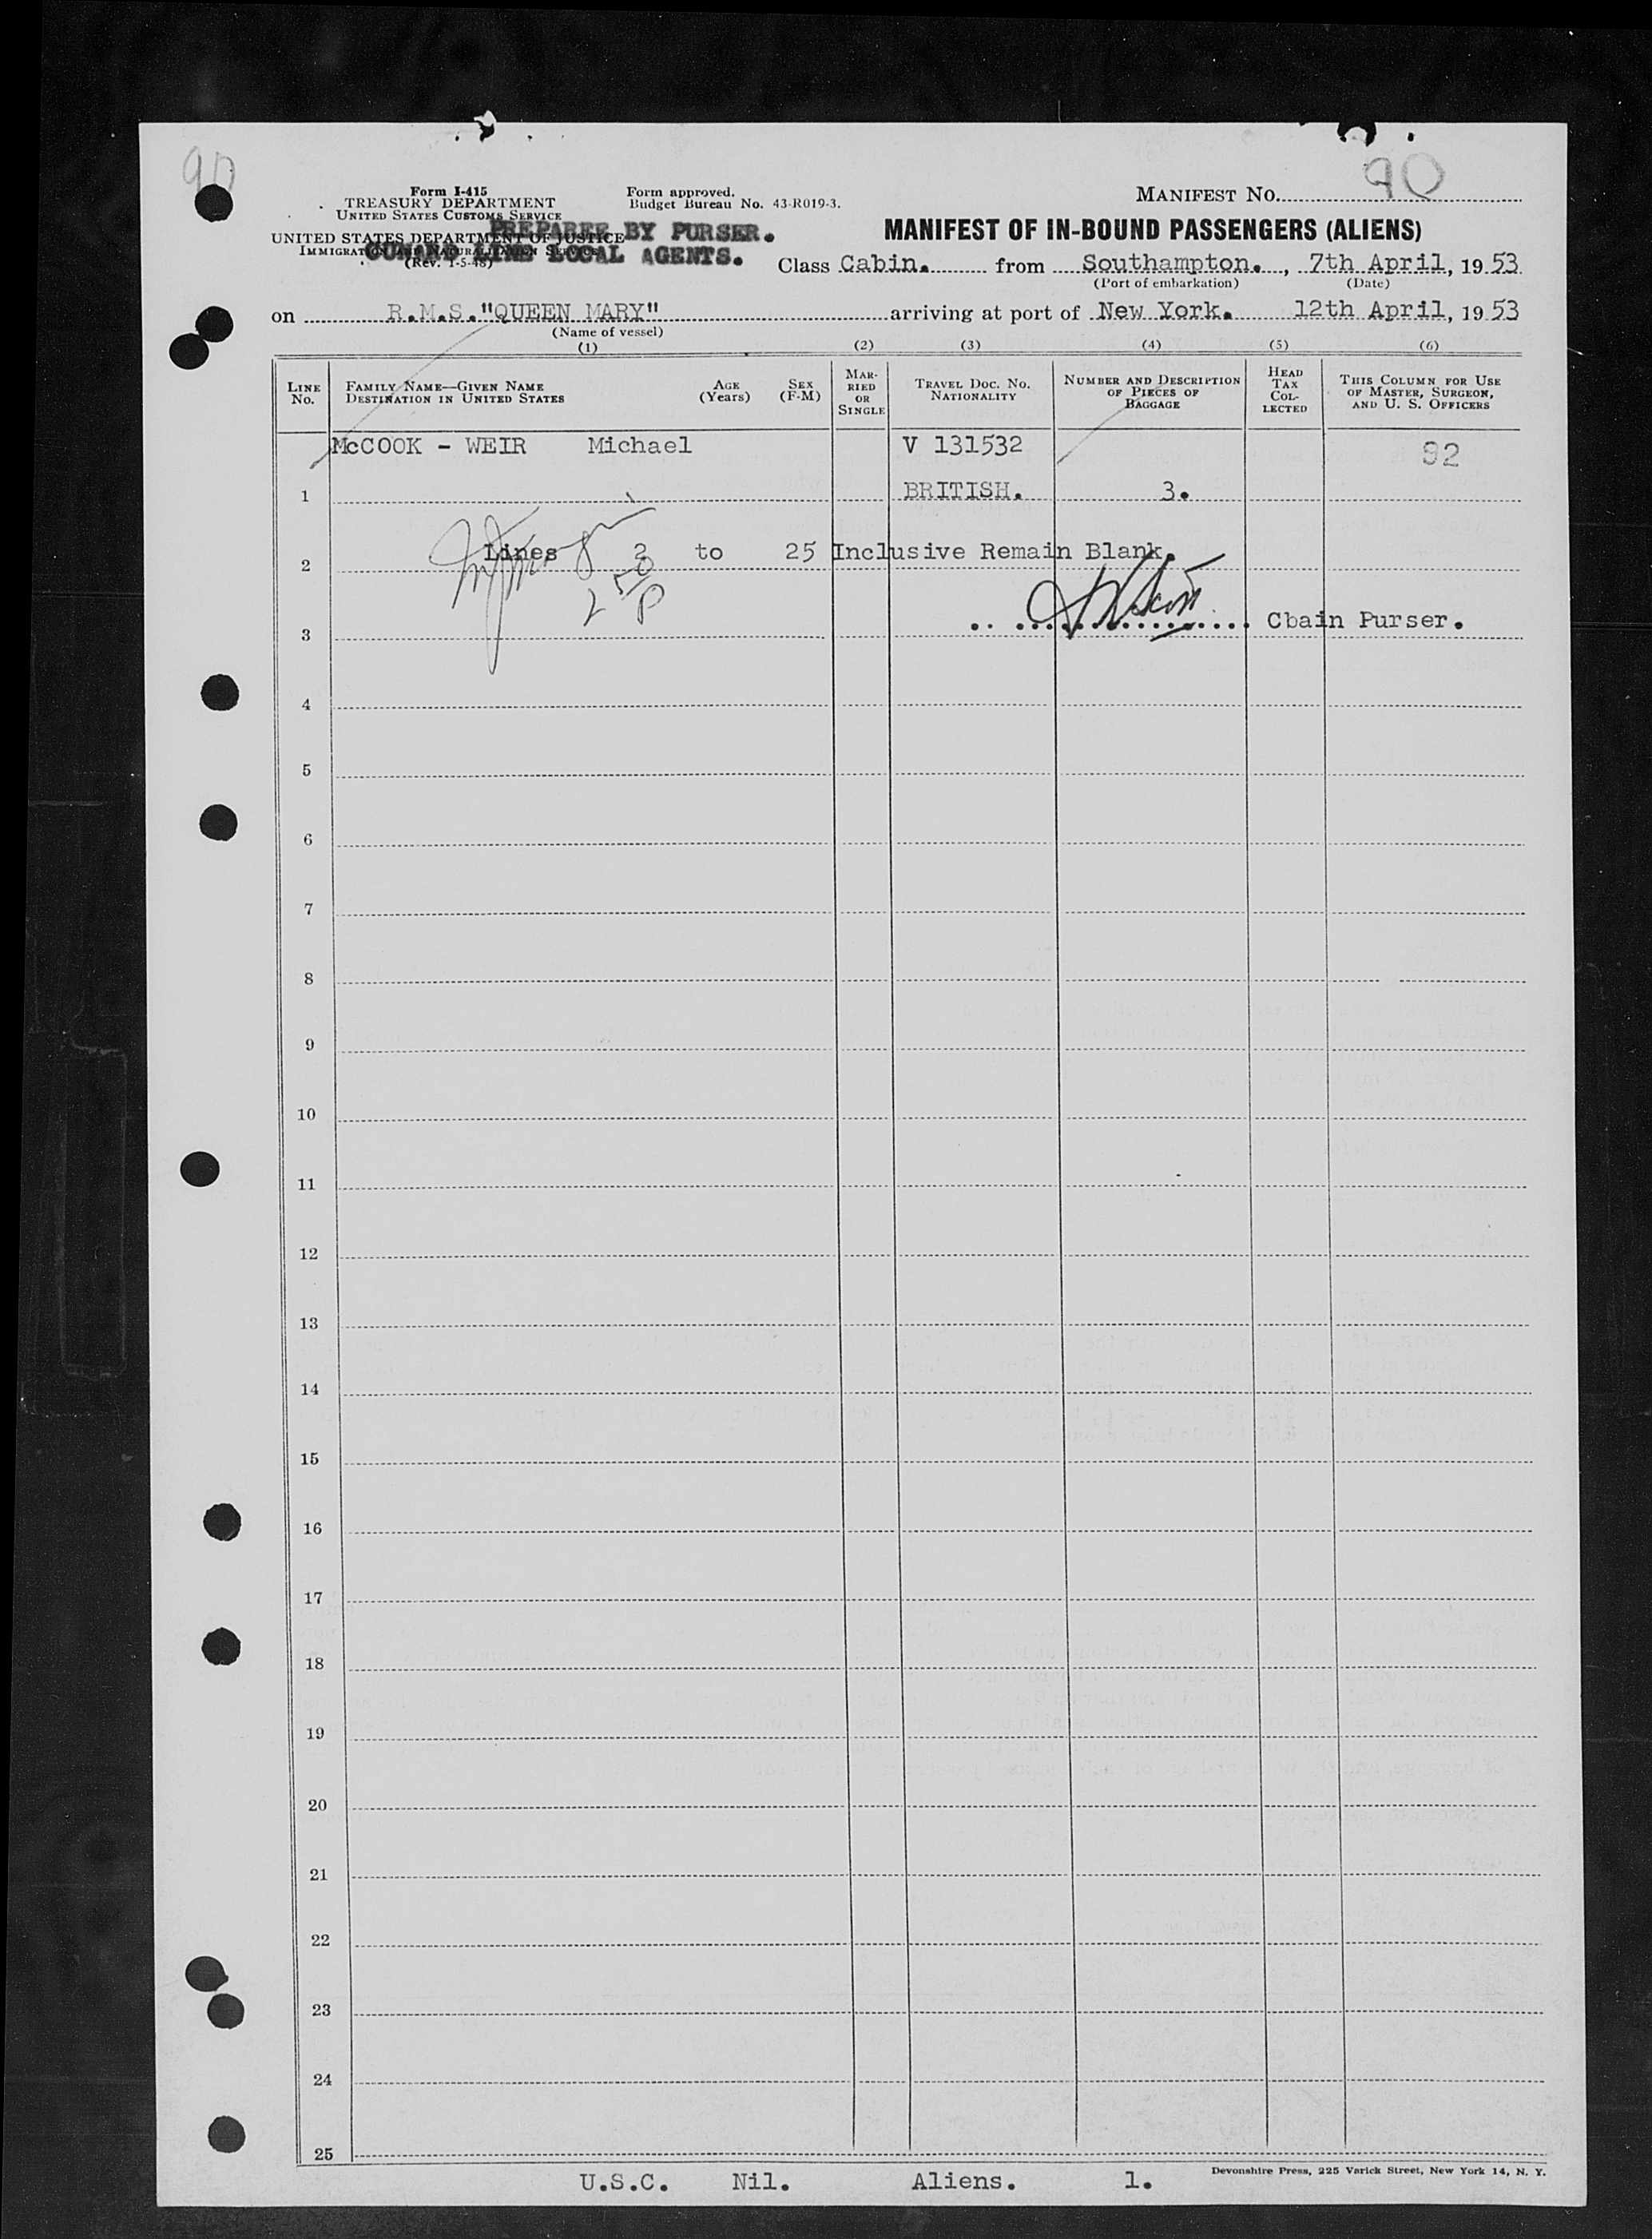 90
90
Form I-415
TREASURY DEPARTMENT
UNITED STATES CUSTOMS SERVICE
UNITED STATES DEPARTMENT OF JUSTICE
IMMIGRATION AND NATURALIZATION SERVICE
(Rev. 1-5-48)
Form approved.
Budget Bureau No. 43-R019-3.
PREPARED BY PURSER.
CUNARD LINE LOCAL AGENTS.
MANIFEST NO.
MANIFEST OF IN-BOUND PASSENGERS (ALIENS)
Class Cabin. from Southampton., 7th April, 19 53
(Port of embarkation) (Date)
on R.M.S."QUEEN MARY" arriving at port of New York. 12th April, 19 53
(Name of vessel)
(1) (2) (3) (4) (5) (6)
LINE NO.
FAMILY NAME—GIVEN NAME
DESTINATION IN UNITED STATES
AGE (Years)
SEX (F-M)
MARRIED OR SINGLE
TRAVEL DOC. NO. NATIONALITY
NUMBER AND DESCRIPTION OF PIECES OF BAGGAGE
HEAD TAX COLLECTED
THIS COLUMN FOR USE OF MASTER, SURGEON, AND U. S. OFFICERS
McCOOK - WEIR Michael V 131532 92
1 BRITISH. 3.
Lines 2 to 25 Inclusive Remain Blank.
2
Cbain Purser.
3
4
5
6
7
8
9
10
11
12
13
14
15
16
17
18
19
20
21
22
23
24
25
U.S.C. Nil. Aliens. 1.
Devonshire Press, 225 Varick Street, New York 14, N. Y.